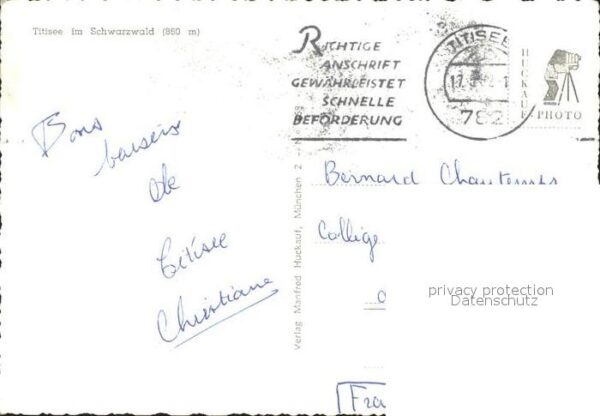 Titisee im Schwarzwald (860 m)
RICHTIGE
ANSCHRIFT
GEWÄHRLEISTET
SCHNELLE
BEFÖRDERUNG
TITISEE
782
HUCKAUF
PHOTO
Bons
baisers
de
Titisee
Christiane
Verlag Manfred Huckauf, München 2
Bernard
Collège
privacy protection
Datenschutz
Fra